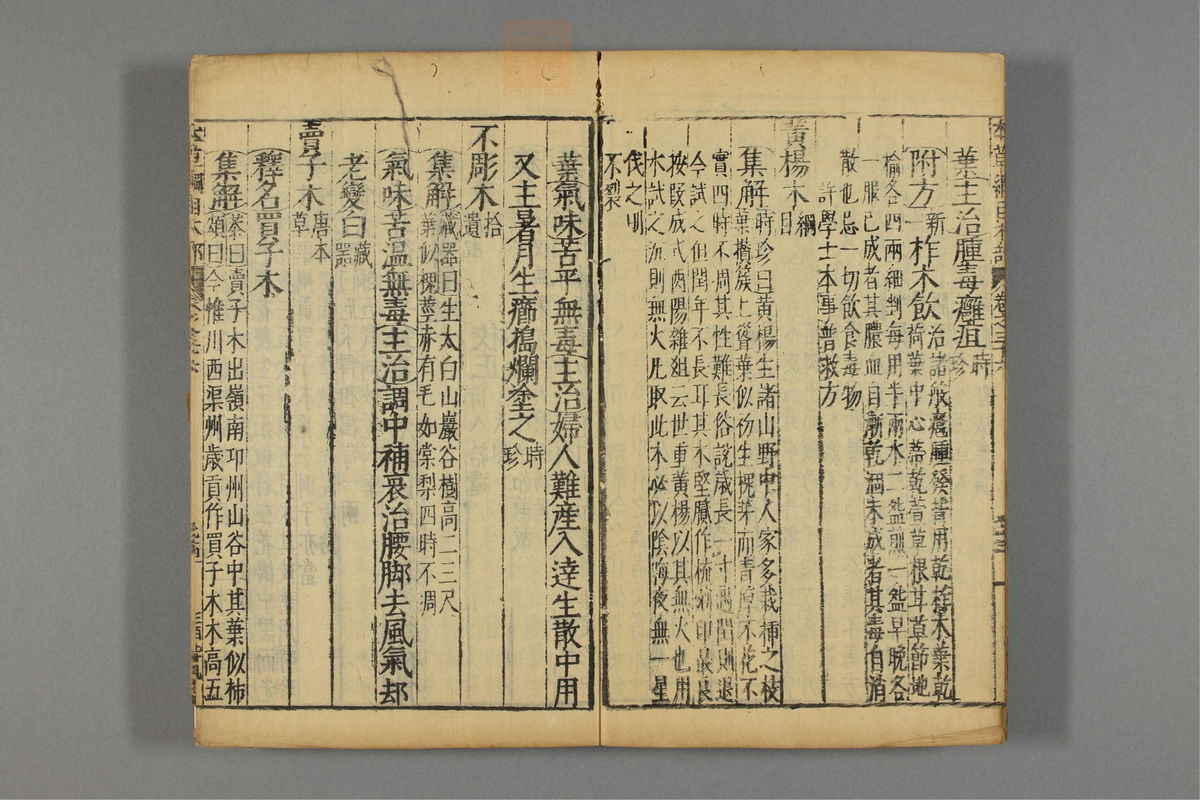 葉主治腫毒癰疽時珍
附方新柞木飲治諸般癰腫發背用乾柞木葉乾
荷葉中心蒂乾萱草根甘草節地
榆各四兩細剉每用半兩水二盌煎一盌早晚各
一服已成者其膿血自漸乾涸未成者其毒自消
散也忌一切飲食毒物
許學士本事普救方
黃楊木綱目
集解時珍曰黃楊生諸山野中人家多栽種之枝
葉攢簇上聳葉似初生槐芽而青厚不花不
實四時不凋其性難長俗說歲長一寸遇閏則退
今試之但閏年不長耳其木堅膩作梳剜印最良
按段成式酉陽雜俎云世重黃楊以其無火也用
水試之沉則無火凡取此木必以陰晦夜無一星
伐之則
不裂
葉氣味苦平無毒主治婦人難產入達生散中用
又主暑月生癤搗爛塗之時珍
不彫木拾遺
集解藏器曰生太白山巖谷樹高二三尺
葉似槐莖赤有毛如棠梨四時不凋
氣味苦溫無毒主治調中補衰治腰脚去風氣却
老變白藏器
賣子木唐本草
釋名買子木
集解恭曰賣子木出嶺南卭州山谷中其葉似柿
頌曰今惟川西渠州歲貢作買子木木高五